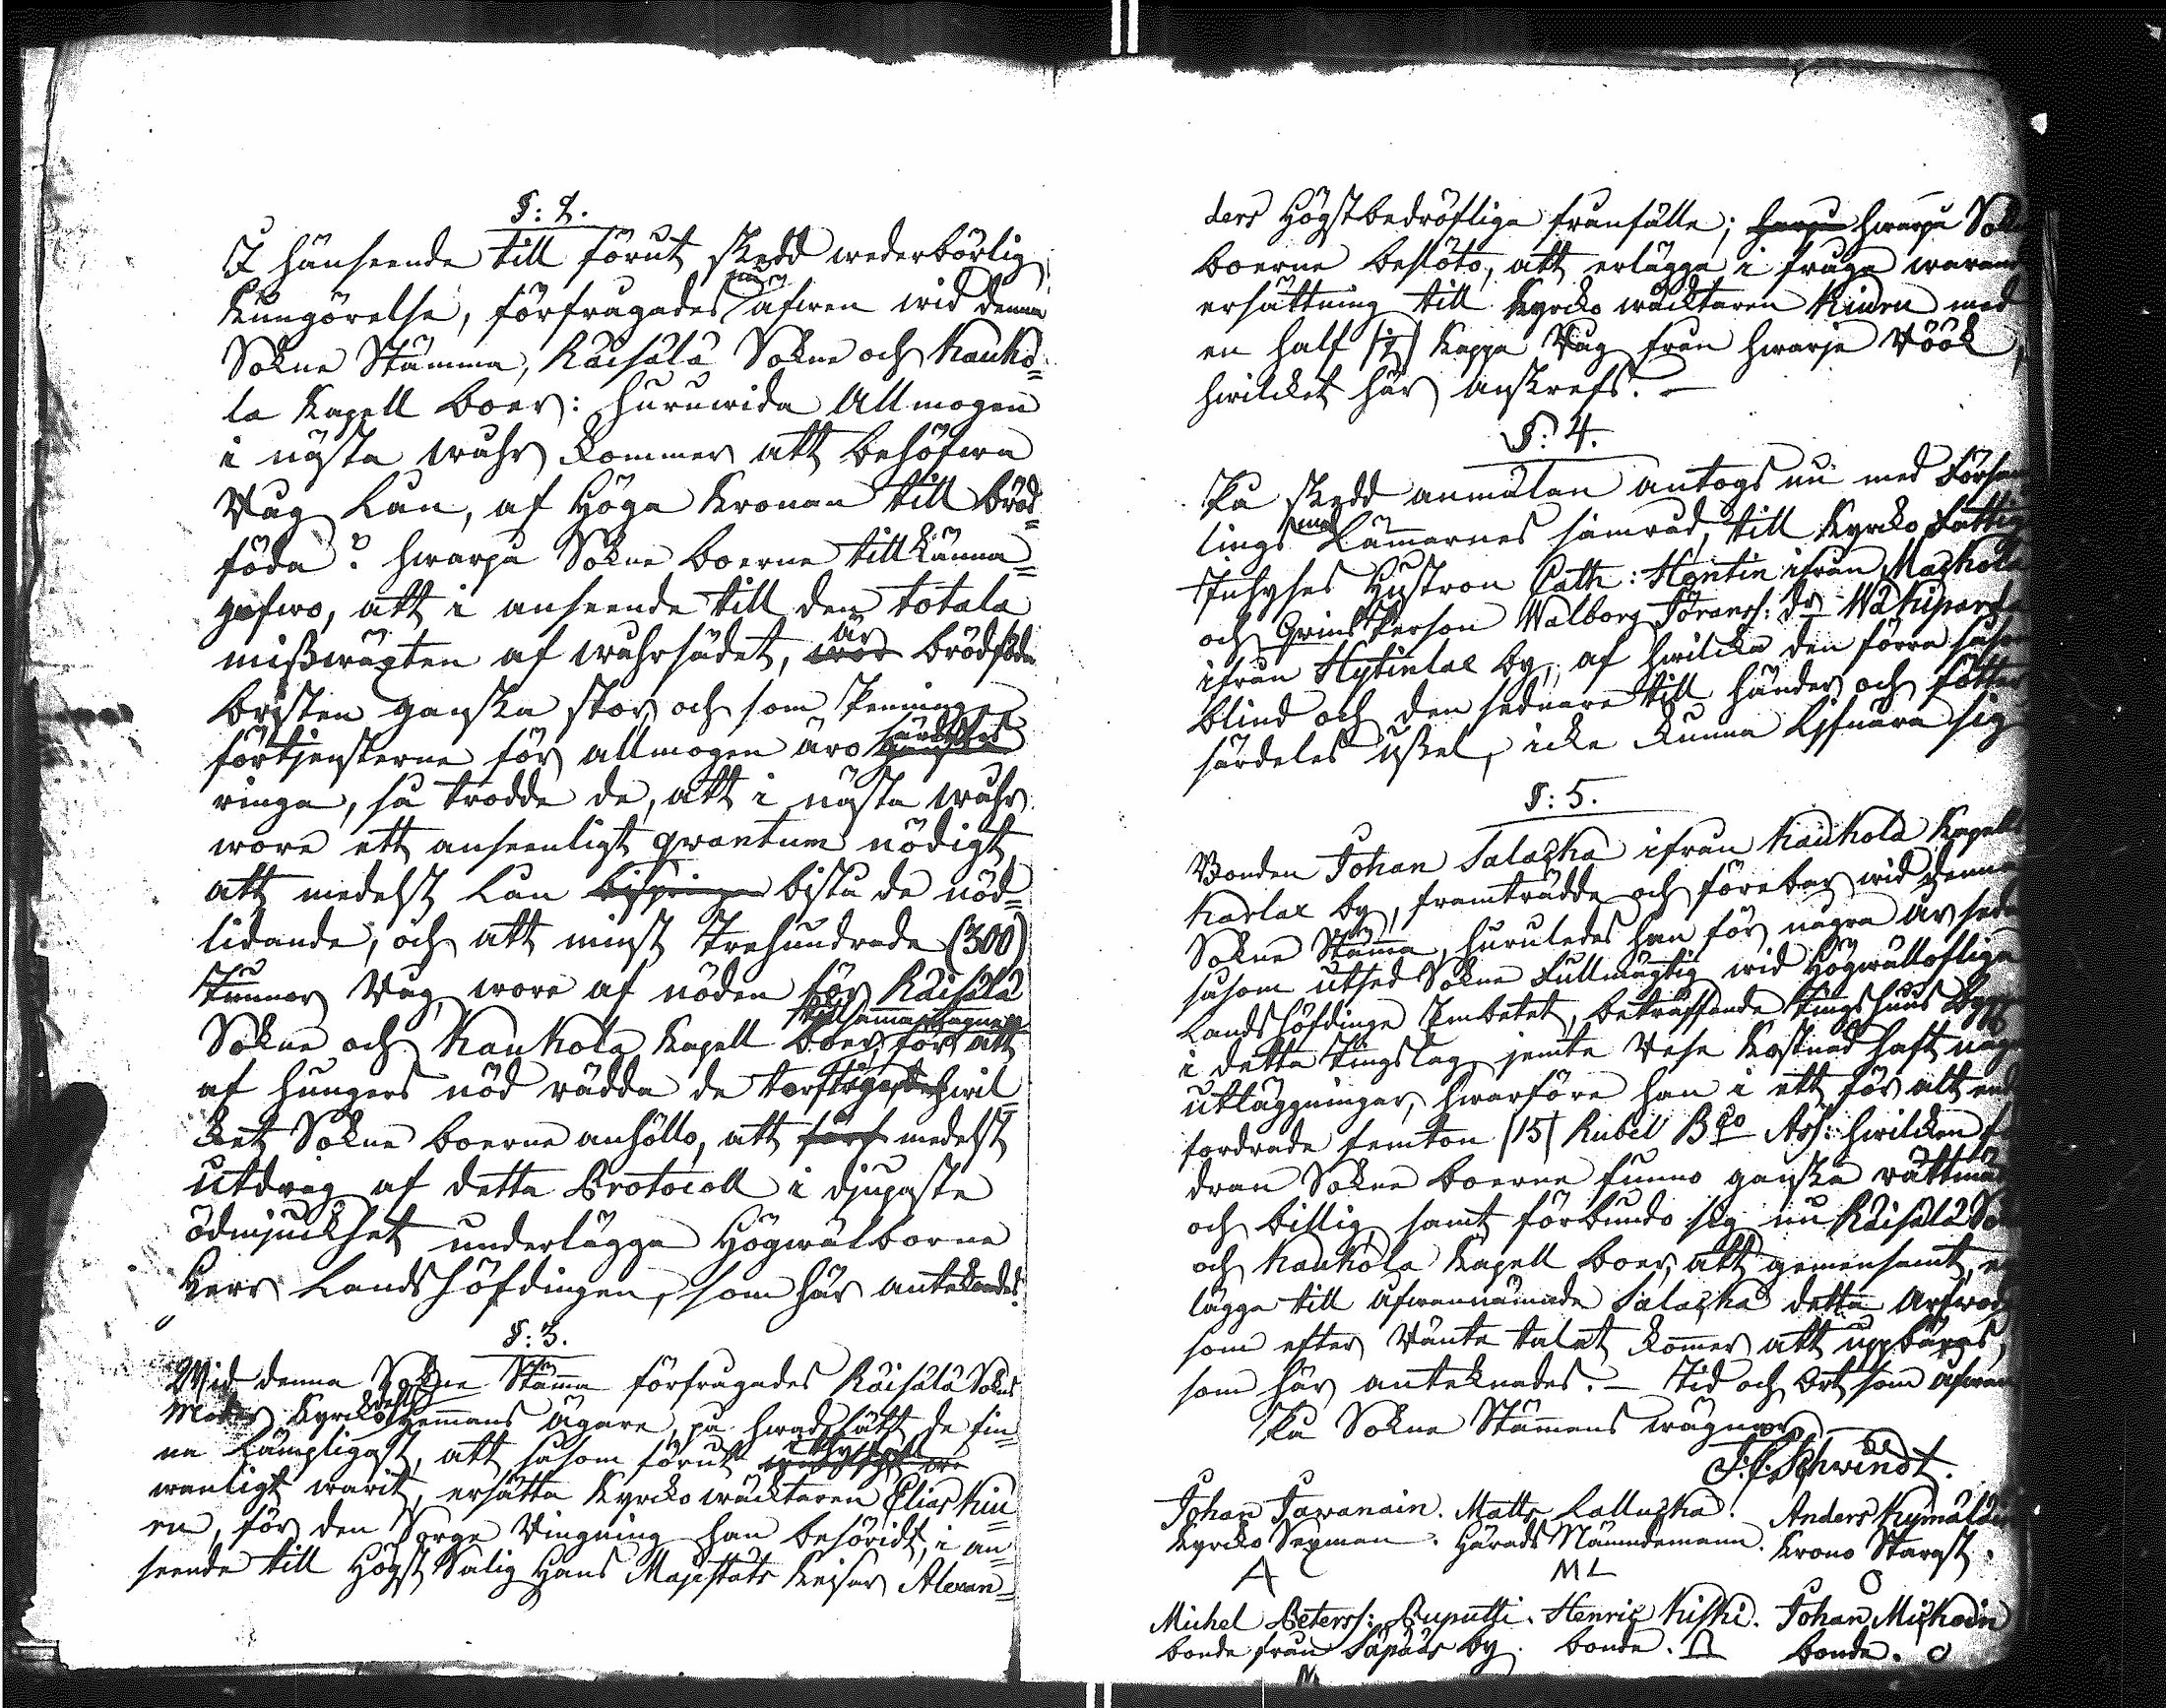 §: 2.
I hänseende till förut skedd wederbörlig
Kungörelse, förfrågades nu äfwen wid denna
Sokne Stämma, Räisälä Sokne och Kauko=
la Kapell boer: huruwida Allmogen
i nästa wåhr kommer att behöfwa
Råg Lån, af Höga Kronan till bröd=
föda? hwarpå Sokne boerne tillkänna=
gofwo, att i anseende till den totala
misswäxten af wåhrsädet, är brödföda
bristen ganska stor och som Penninge
förtjensterne för allmogen äro särdeles
ringa, så trodde de, att i nästa wåhr
wore ett anseenligt qwantum nödigt
att medelst Lån bispringa bistå de nöd=
lidande, och att minst Trehundrade (300)
Tunnor Råg wore af nöden för Räisälä
Sokne och Kaukola Kapell boer, tillsammantagne för att
af hungers nöd rädda de torftigaste hwil=
ket Sokne boerne anhöllo, att medelst
utdrag af detta Protocoll i djupaste
ödmjuckhet underlägga Högwälborne
Herr Landshöfdingen, som här antecknades.
§: 3.
Wid denna Sokne Stämma förfrågades Räisälä Sokne
Moders Kyrko Hemmans ägare, på hwad sätt de fin=
na lämpligast, att såsom förut
wanligt warit, ersätta Kyrcko wäcktaren Elias Kiu=
ru, för den Sorge Ringning han besöridt, i an=
seende till Högst Salig Hans Majestäts Keisar Alexan=
ders Högstbedröfliga frånfälle; harpå hwarpå Sokne
boerne beslöto, att erlägga i fråga warande
ersättning till Kyrcko wäcktaren Kiuru med
en half (½) Kappa Råg från hwarje Röök,
hwilcket här anskrefs. —
§: 4.
På skedd anmälan antogs nu med Försam
lings männernes samråd, till Kyrcko Fattig
Inhyses Hustron Cath: Hentin ifrån
och Qwins Person Walborg Göranss: dr
ifrån Hytinlax by, af hwilcka den förra såsom
blind och den sednare till händer och fötter
särdeles ussel, icke kunna lifnära sig
§: 5.
Bonden Johan Salaska ifrån Kaukola Kapell
Karlax by, framträdde och förebar wid denna
Sokne Stämma, huruledes han för några år seda
såsom utsed Sokne Fullmägtig wid Högwällofliga
Landshöfdinge Embetet, beträffande Tingshuus bygg
i detta Tingslag jemte Rese Kostnad haft någr
utläggningar, hwarföre han i ett för allt nu
fordrade femton (15) Rubel Bco Ass: hwilcken for
dran Sokne boerne funno ganska rättmät
och billig, samt förbundo sig nu Räisälä Sokne
och Kaukola Kapell boer, att gemensamt er
lägga till äfwannämnde Salaska detta Arfwode
som efter Rånte talet kommer att uppbäras,
som här antecknades. — Tid och Ort som äfwan
På Sokne Stämmans wägnar
J. F. Schwindt.
Johan Tawanain. Matts Lalluska. Anders Kymäläi
Kyrcko Sexman. Härads Nämndemann. Krono Starast.
A ML O
Michel Peterss: Puputti. Henric Kiski. Johan Miskoin
bonde från Säpäär by. bonde. bonde. O